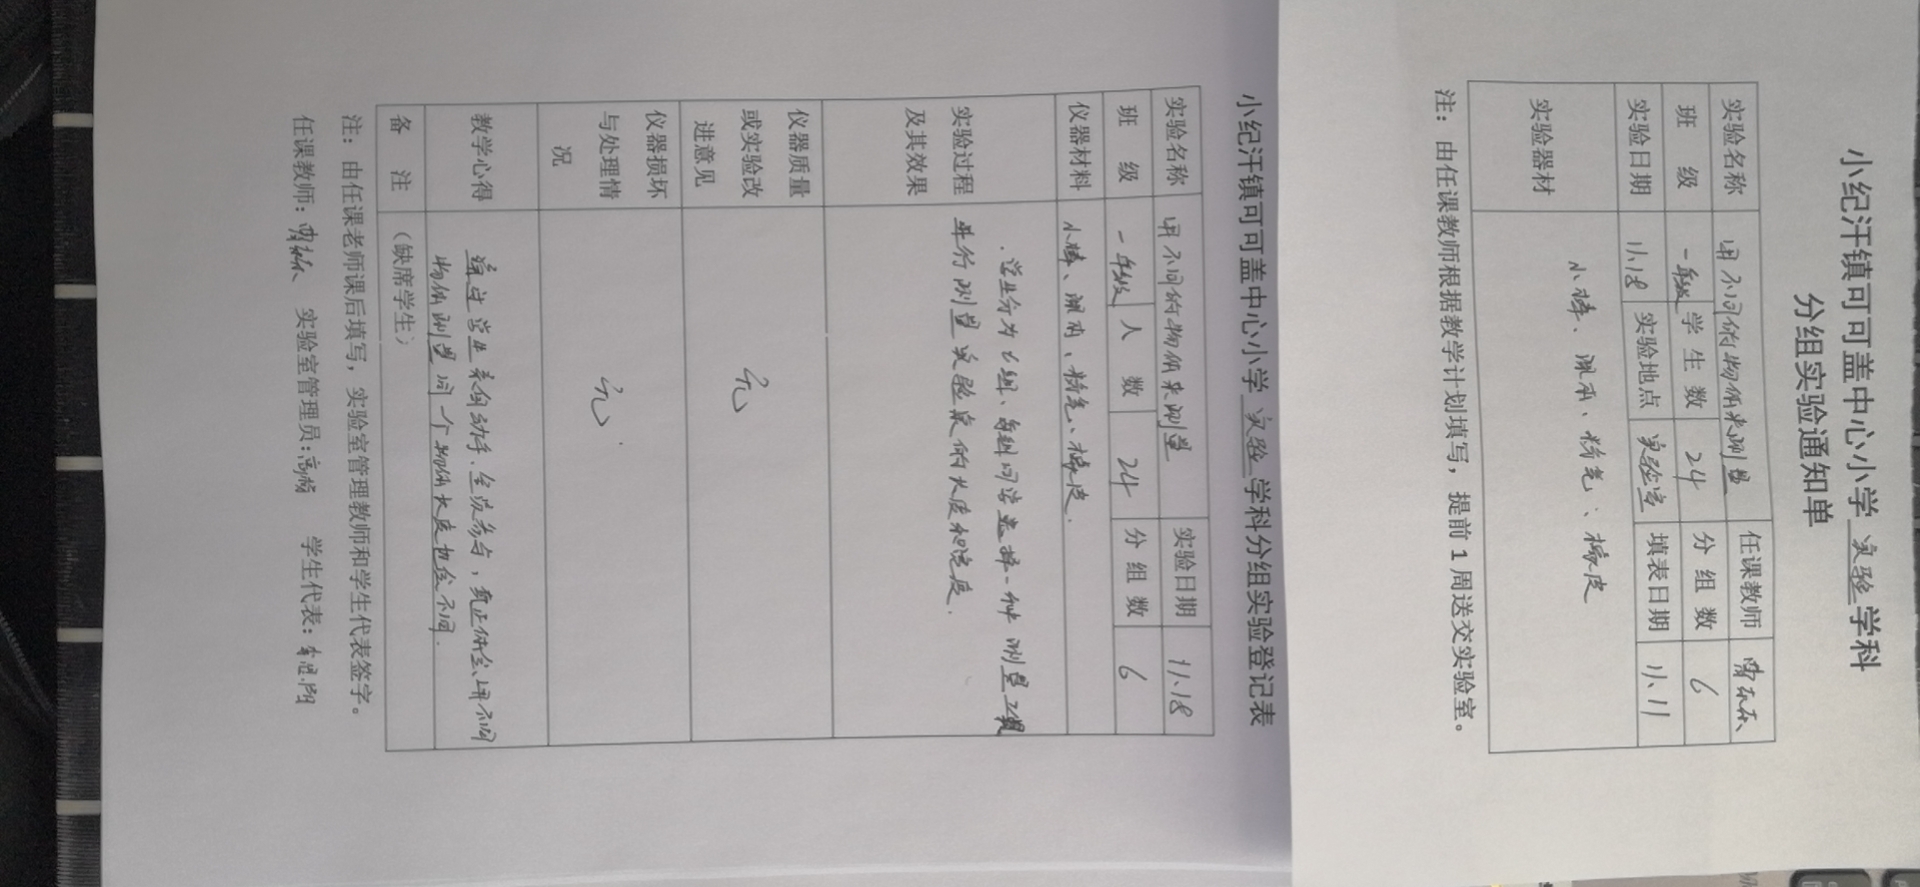 小纪汗镇可可盖中心小学 实验 学科
分组实验通知单
实验名称 用不同的物体来测量 任课教师
班 级 一年级 学生数 24 分组数 6
实验日期 11.18 实验地点 实验室 填表日期 11.11
实验器材 小棒、课本、橡皮
注：由任课教师根据教学计划填写，提前1周送交实验室。
小纪汗镇可可盖中心小学 实验 学科分组实验登记表
实验名称 用不同的物体来测量 实验日期 11.18
班 级 一年级 人 数 24 分组数 6
仪器材料 小棒、课本、橡皮.
实验过程及其效果 学生分为6组、每组同学选择一种测量工具
进行测量实验桌的长度和宽度.
仪器质量或实验改进意见 无
仪器损坏与处理情况 无
教学心得 通过学生亲自动手、全员参与，真正体会用不同
物体测量同一个物体长度也会不同.
备 注 （缺席学生）
注：由任课老师课后填写，实验室管理教师和学生代表签字。
任课教师： 实验室管理员： 学生代表：